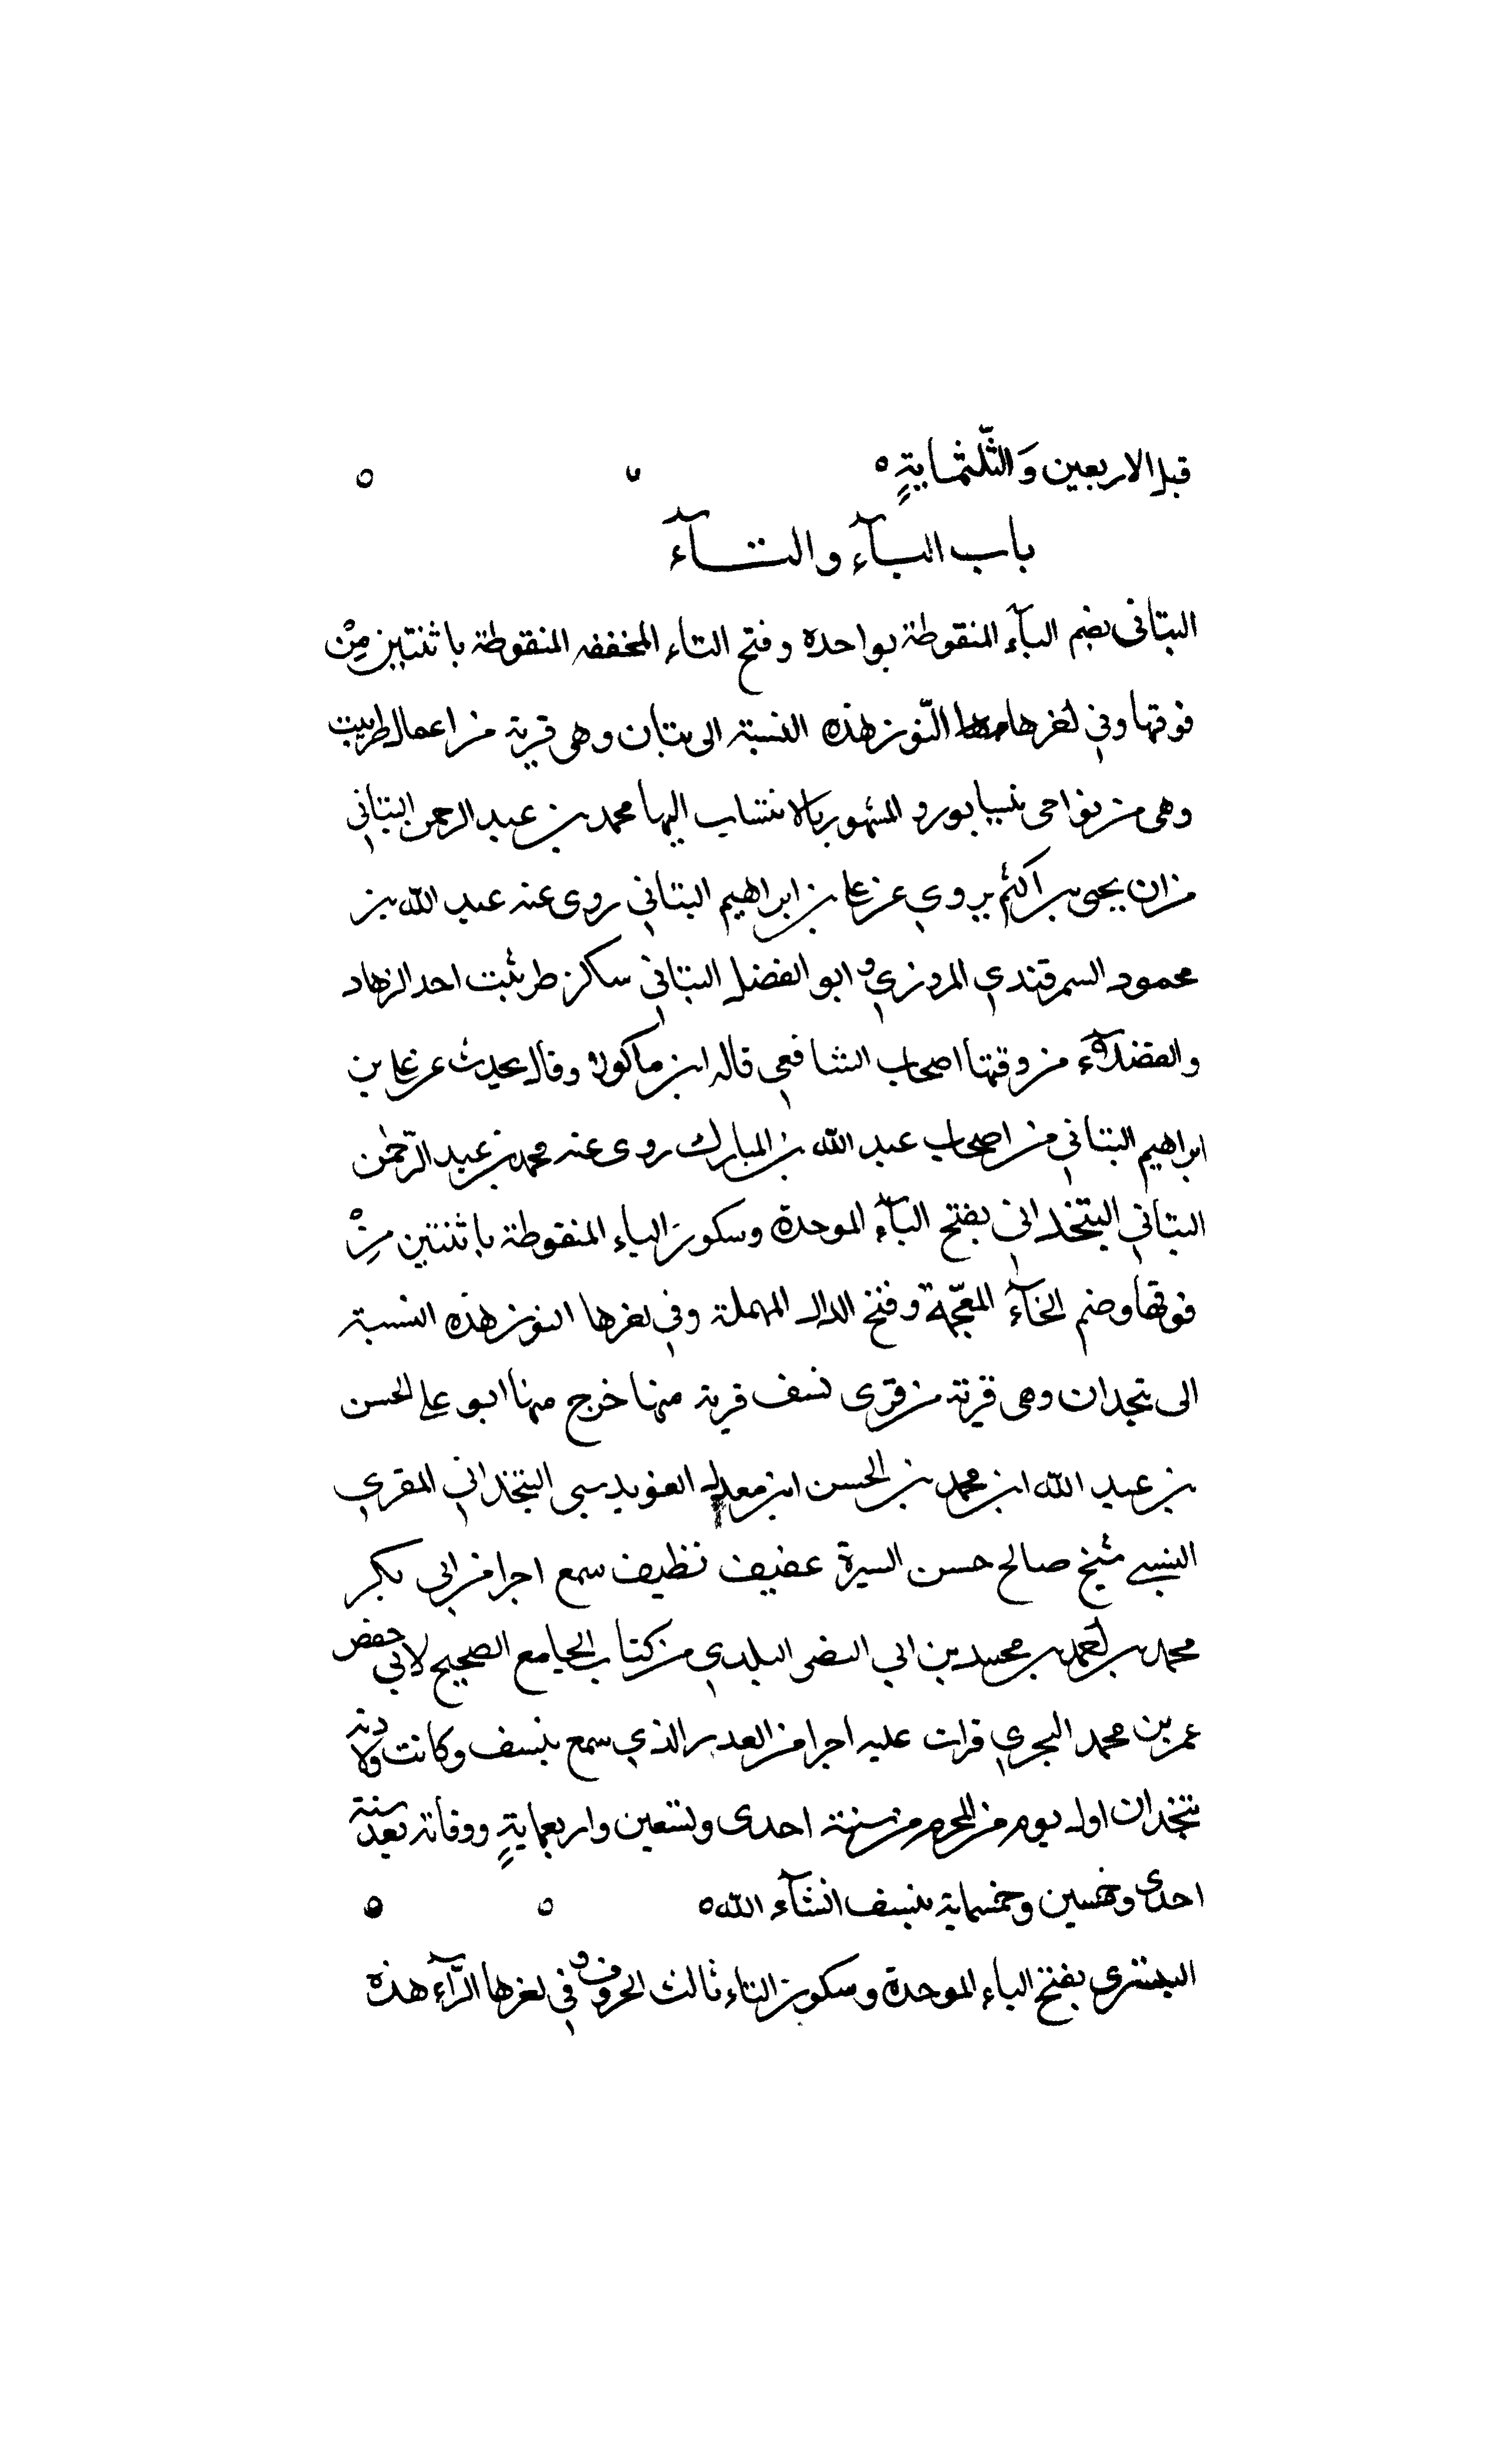 قبل الاربعين وَالثّلثمايةٍ ه
باب البآء والتآء
البتانى بضم البآء المنقوطة بواحدة وفتح التاء المخففه المنقوطة باثنتين مِنْ
فوقها وفي اخرها النّون هذه النسبة الى بتان وهى قرية من اعمال طريثيث
وهى من نواحى نيسابور والمشهور بالانتساب اليها محمد بن عبد الرحمن البتاني
من ان يحيى بن اكثم يروي عن علي بن ابراهيم البتاني روى عنه عبد الله بن
محمود السمرقندي المروزي وابو الفضل البتاني ساكن طريثيث احد الزهاد
والفضلآء من وقتها اصحاب الشافعي قاله ابن ماكولا وقال يحدث عن علي بن
ابراهيم البتاني من اصحاب عبد الله بن المبارك روى عنه محمد بن عبد الرّحمن
البتاني البتخداني بفتح البآء الموحدة وسكون التاء المنقوطة باثنتين مِنْ
فوقها وضم الخآء المعجّمة وفتح الدال المهملة وفي اخرها النون هذه النسبة
الى بتخدان وهى قرية من قرى نسف قرية منها خرج منها ابو علي الحسن
بن عبد الله ابن محمد بن الحسن ابن معدل الغويديني البتخداني المقري
النسفي شيخ صالح حسن السيرة عفيف نظيف سمع اجزا من ابي بكر
محمد بن احمد بن محمد بن ابي النضر البلدي من كتاب الجامع الصحيح لابي حفص
عمر بن محمد البجري قرات عليه اجزا من القدر الذي سمع بنسف وكانت ولادته
بتخدان اول يوم من المحرم من سنة احدى وتسعين واربعمايةٍ ووفاته بعد سنة
احدى وخمسين وخمسماية بنسف انشآء الله ه
البتري بفتح الباء الموحدة وسكون التاء ثالث الحروف وفي اخرها الرّآء هذه